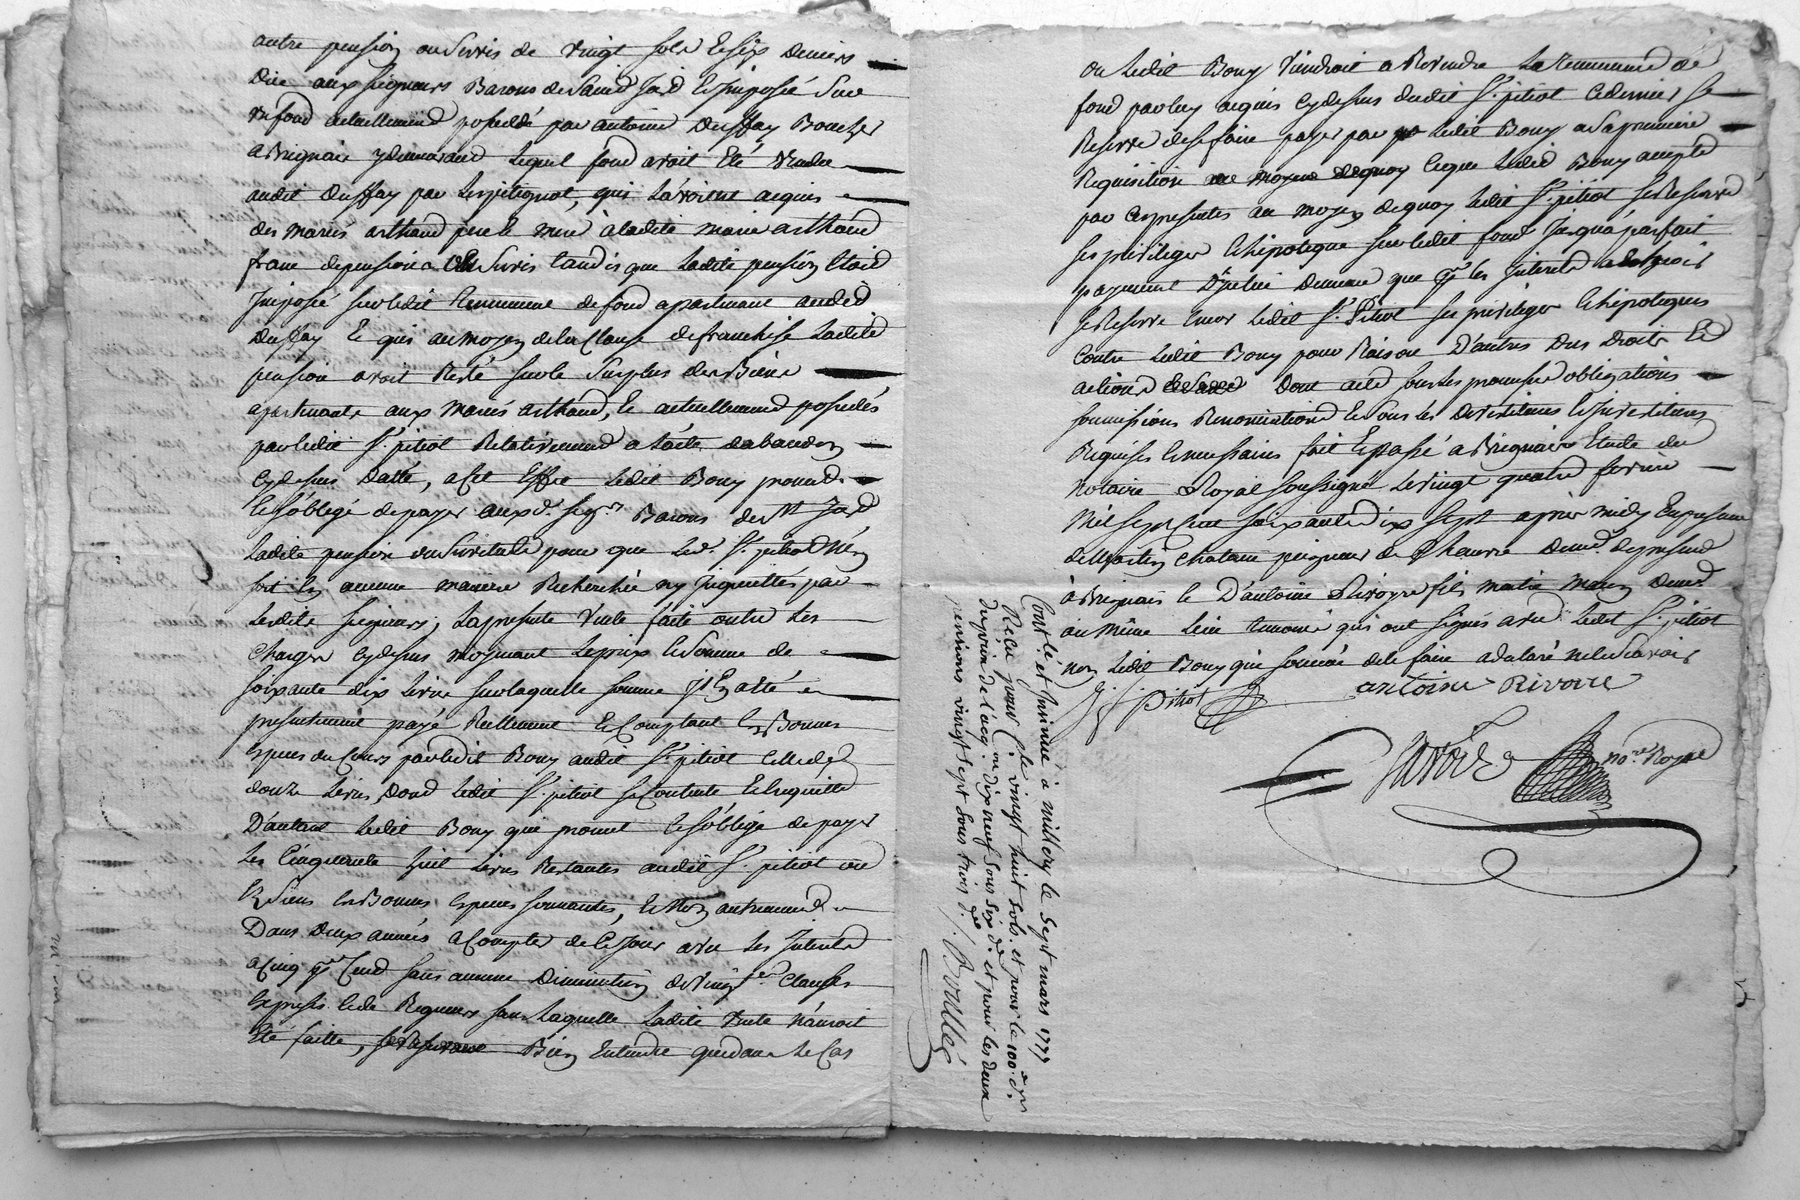 autre pension ou servis de vingt sols et six deniers
Due aux seigneurs Barons de Saind Jard et imposée sur
un fond actuellement possédé par antoine Dussay Boucher
a Brignais y demeurant lequel fond avoit Eté vendu
audit Dussay par led pitiot, qui l'avoient acquis
des mariés arthaud pere et mere à ladite marie arthaud
franc de pension et servis tandis que ladite pension Etoit
Imposée sur ledit tenement de fond apartenant audit
Dussay Et qui au moyen de la Clause de franchise ladite
pension avoit Resté sur le Surplus des Biens
apartenants aux mariés arthaud, et actuellement possedés
par ledit Sr. pitiot Relativement a l'acte d'abandon
cy dessus Datté, a cet Effet ledit Bouy promet
et s'oblege de payer auxd. seigrs. Barons de St Jard
ladite pension ou servis pour que led. Sr. pitiot N'en
soit en aucune maniere Recherchée ny Inquietté par
lesdits seigneurs; la presente Vente faite outre les
Charges cy dessus moyenant le prix et Somme de
soixante dix Livres sur laquelle somme Il En a Eté
presentement payé Reellement et Comptant En Bonnes
Especes du Cours par ledit Bouy audit Sr. pitiot Celle de
douze Livres, Dont ledit Sr. pitiot se Contente Et le quitte
D'autant ledit Bouy qui promet et s'oblege de payer
les Cinquante huit Livres Restantes audit Sr. pitiot ou
és Siens En Bonnes Especes sonnantes, et Non autrement
Dans deux années a Compter de Ce Jour avec les Interets
a Cinq pr Cent sans aucune Diminution de vingte. Clauses
Expresses et de Rigueurs sans laquelle ladite Vente n'auroit
Eté faitte, Bien Entendu que dans le Cas
ou ledit Bouy Viendroit a Revendre le tenement de
fond par luy acquis cy dessus dudit Sr. pitiot ce dernier se
Reserve de se faire payer par ledit Bouy a sa premiere
Requisition au moyen de quoy ce que ledit Bouy accepte
par ces presentes au moyen de quoy ledit Sr. pitiot se Reserve
ses privileges et hipoteque sur ledit fond Jusqu'a parfait
payement
se Reserve Encor ledit Sr. Pitiot ses privileges et hipoteques
Contre ledit Bouy pour Raison D'autres Dus Droits Et
actions Dont acte sous les promesses obligations
soumissions Renonciations et sous les
Requises et necessaires fait Et passé a Brignais Etude du
Notaire Royal soussigné le vingt quatre fevrier
Mil sept cent soixante dix sept après midy En presence
de Martin chatain peigneur de Chanvre Demt. de present
à Brignais et D'antoine Rivoire fils Demt.
au même lieu temoins qui ont signés avec ledit Sr. pitiot
non ledit Bouy qui sommé de le faire a declaré ne le scavoir
Pitiot antoine Rivoire
nore. Royal
Contlé et Insinué à millery le sept mars 1777
Recu pour ple vingt huit sols. et pour le 100. d.
du prix de l'acq. un dix neuf sous six d. et pour les deux
pensions vingt sept sous trois d.